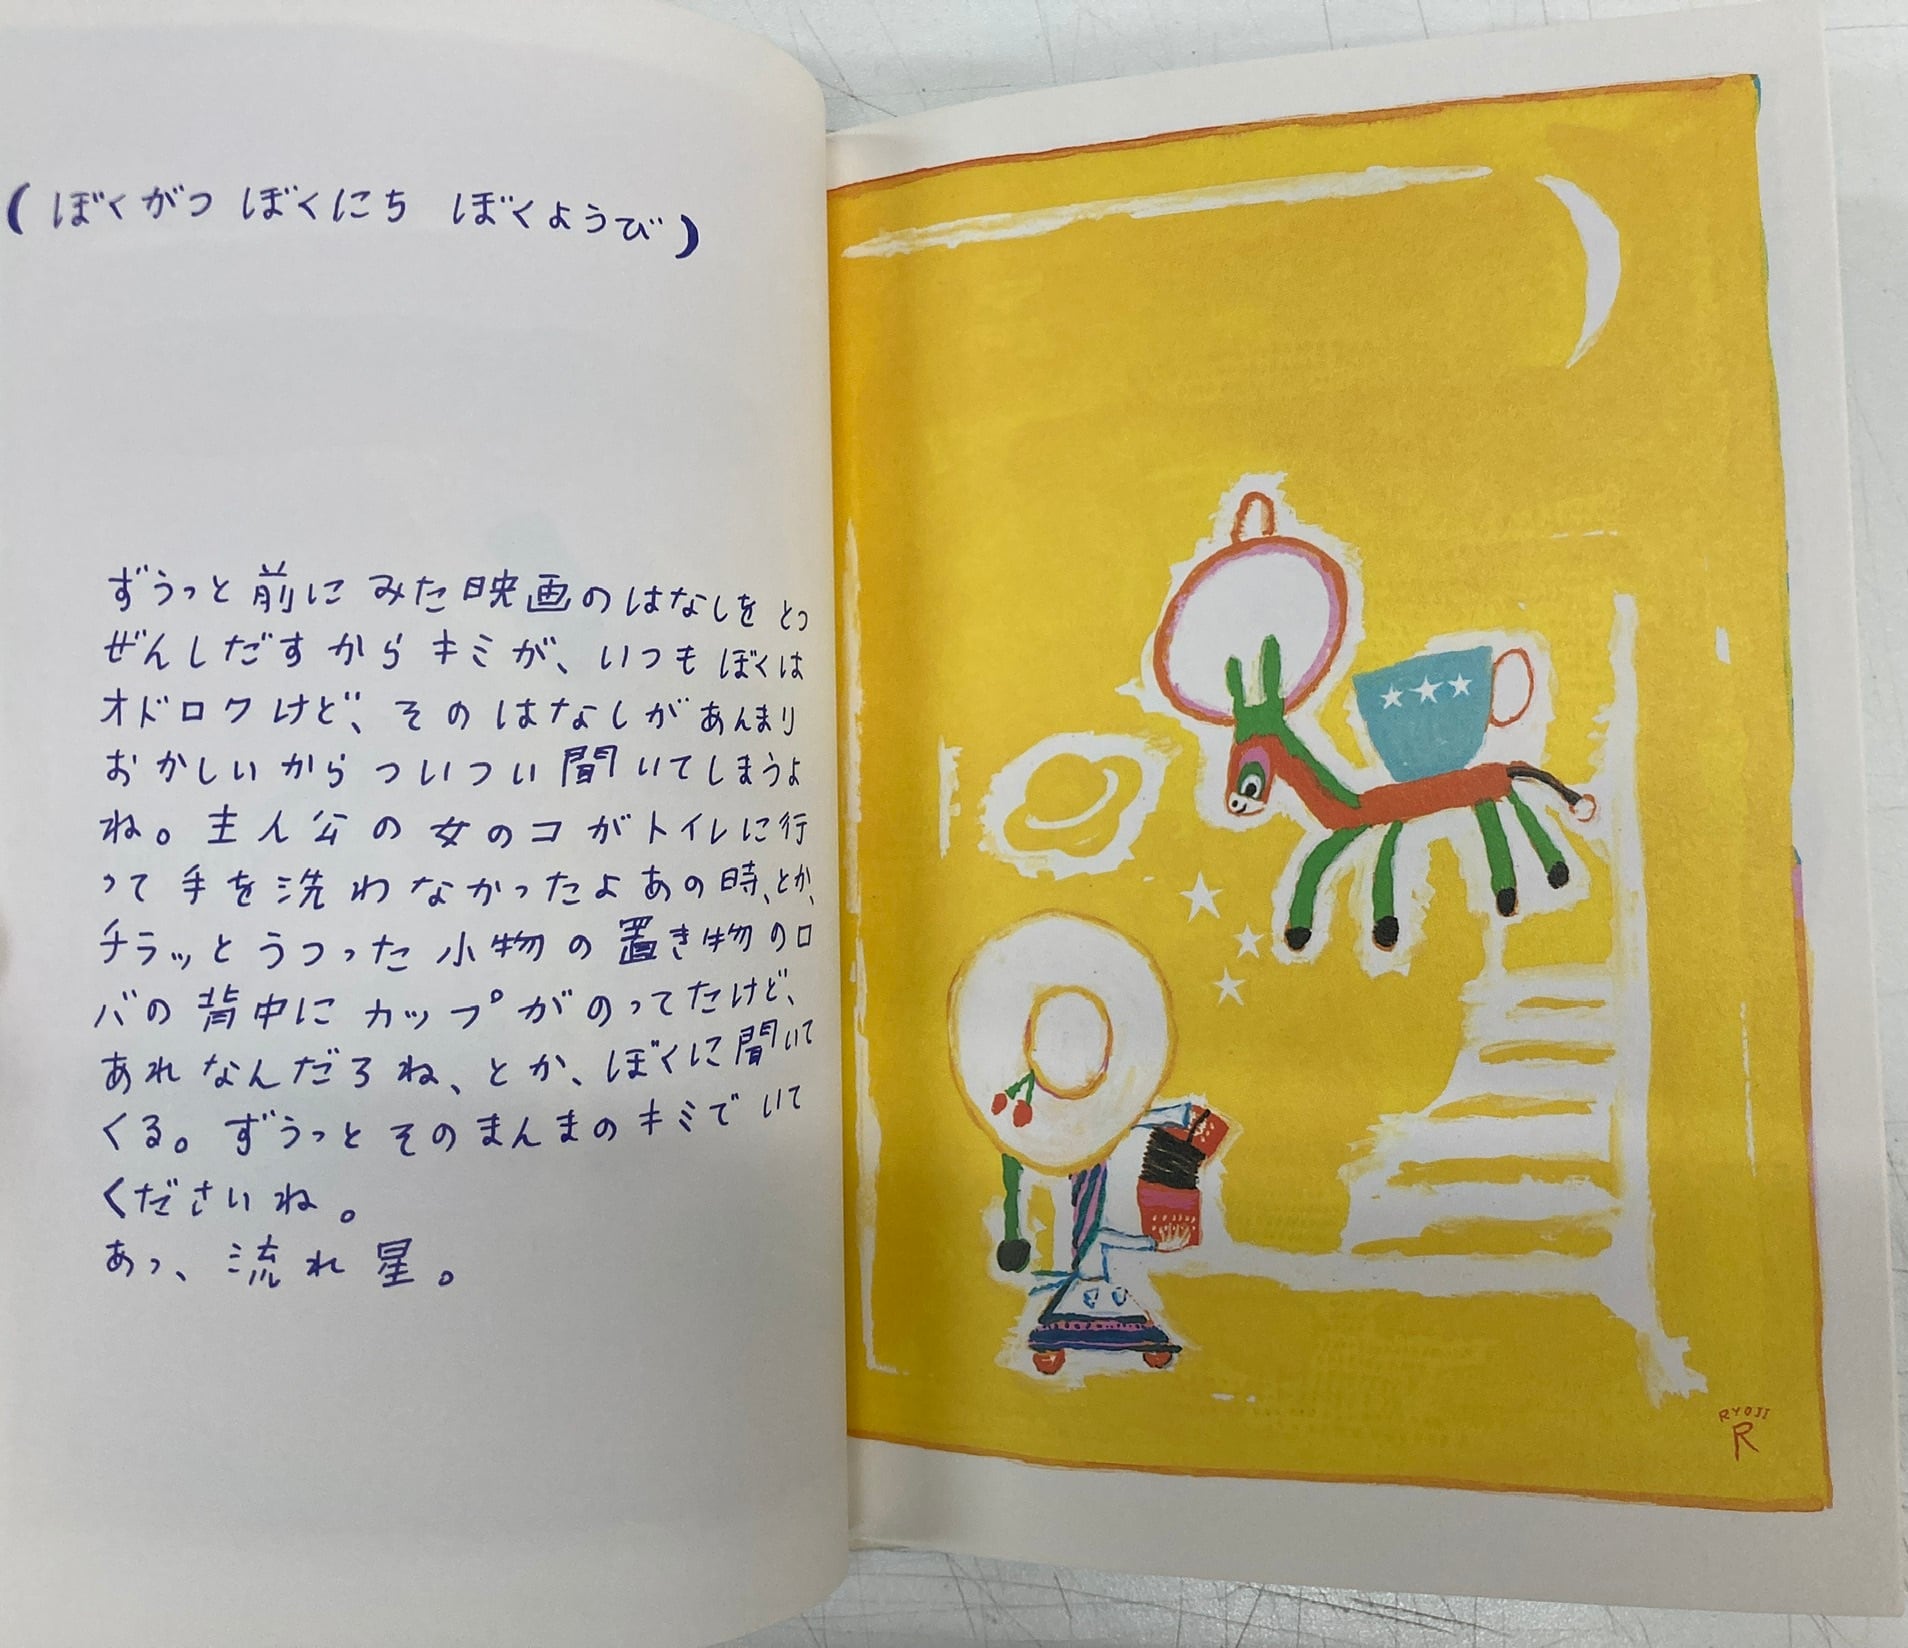 (ぼくがつ ぼくにち ぼくようび)
ずうっと前にみた映画のはなしをとつ
ぜんしだすからキミが、いつもぼくは
オドロクけど、そのはなしがあんまり
おかしいからついつい聞いてしまうよ
ね。主人公の女のコがトイレに行
って手を洗わなかったよあの時、とか、
チラッとうつった小物の置き物のロ
バの背中にカップがのってたけど、
あれなんだろね、とか、ぼくに聞いて
くる。ずうっとそのまんまのキミでいて
くださいね。
あっ、流れ星。
RYOJI
R